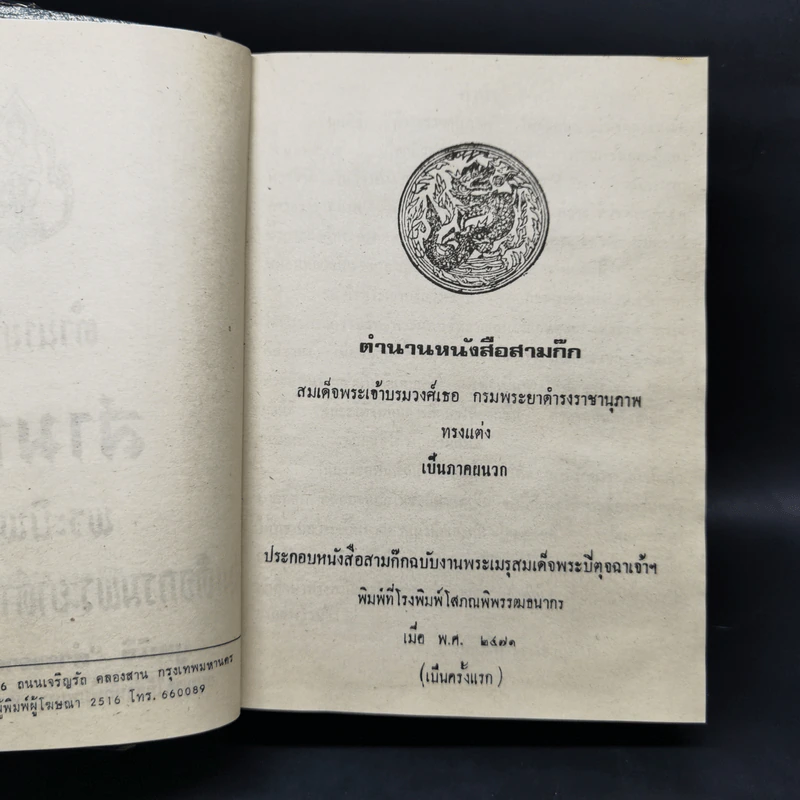 6 ถนนเจริญรัถ คลองสาน กรุงเทพมหานคร
ผู้พิมพ์ผู้โฆษณา 2516 โทร. 660089
ตำนานหนังสือสามก๊ก
สมเด็จพระเจ้าบรมวงศ์เธอ กรมพระยาดำรงราชานุภาพ
ทรงแต่ง
เป็นภาคผนวก
ประกอบหนังสือสามก๊กฉบับงานพระเมรุสมเด็จพระปิตุจฉาเจ้าฯ
พิมพ์ที่โรงพิมพ์โสภณพิพรรฒธนากร
เมื่อ พ.ศ. ๒๔๗๑
(เป็นครั้งแรก)